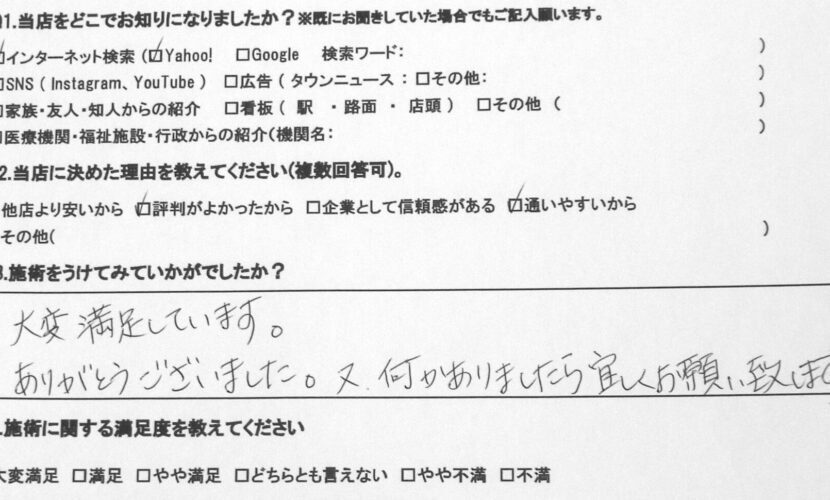 1.当店をどこでお知りになりましたか？※既にお聞きしていた場合でもご記入願います。
☑インターネット検索（☑Yahoo!　□Google　検索ワード：　）
□SNS（Instagram、YouTube）　□広告（タウンニュース：□その他：　）
□家族・友人・知人からの紹介　□看板（駅・路面・店頭）　□その他（　）
□医療機関・福祉施設・行政からの紹介（機関名：　）
2.当店に決めた理由を教えてください(複数回答可)。
他店より安いから　☑評判がよかったから　□企業として信頼感がある　☑通いやすいから
その他(　)
3.施術をうけてみていかがでしたか？
大変満足しています。
ありがとうございました。又、何かありましたら宜しくお願い致しま
.施術に関する満足度を教えてください
大変満足　□満足　□やや満足　□どちらとも言えない　□やや不満　□不満